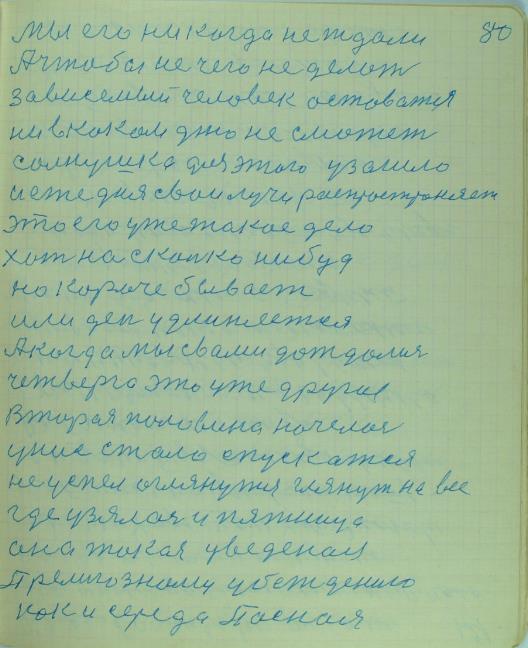 80
мы его никогда не ждали
А чтобы не чего не делат
зависемый человек остоватся
ни в коком дно не сможет
солнушка для этого узашло
и еже дня свои лучи распространяет
это его уже такое дело
хот на сколко нибуд
но короче бывает
или ден удлиняется
А когда мы свами дождалия
четверга это уже другая
Вторая половина началоя
уние стало спускатся
не успел оглянутя глянут на все
где узялоя и пятница
она такая уведеная
Прелигозному убеждению
как и середа Посная